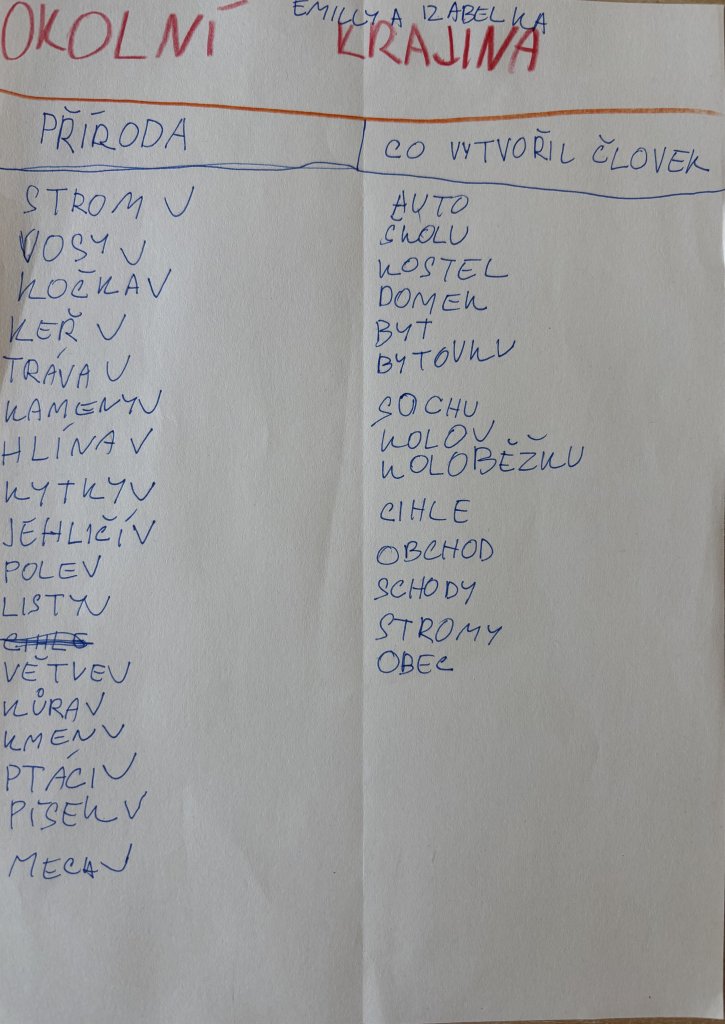 EMILLY A IZABELKA
OKOLNÍ KRAJINA
PŘÍRODA
STROM
VOSY
KOČKA
KEŘ
TRÁVA
KAMENY
HLÍNA
KYTKY
JEHLIČÍ
POLE
LISTY
CIHLE
VĚTVE
KŮRA
KMEN
PTÁCI
PÍSEK
MECA
CO VYTVOŘIL ČLOVEK
AUTO
ŠKOLU
KOSTEL
DOMEK
BYT
BYTOVKU
SOCHU
KOLO
KOLOBĚŽKU
CIHLE
OBCHOD
SCHODY
STROMY
OBEC